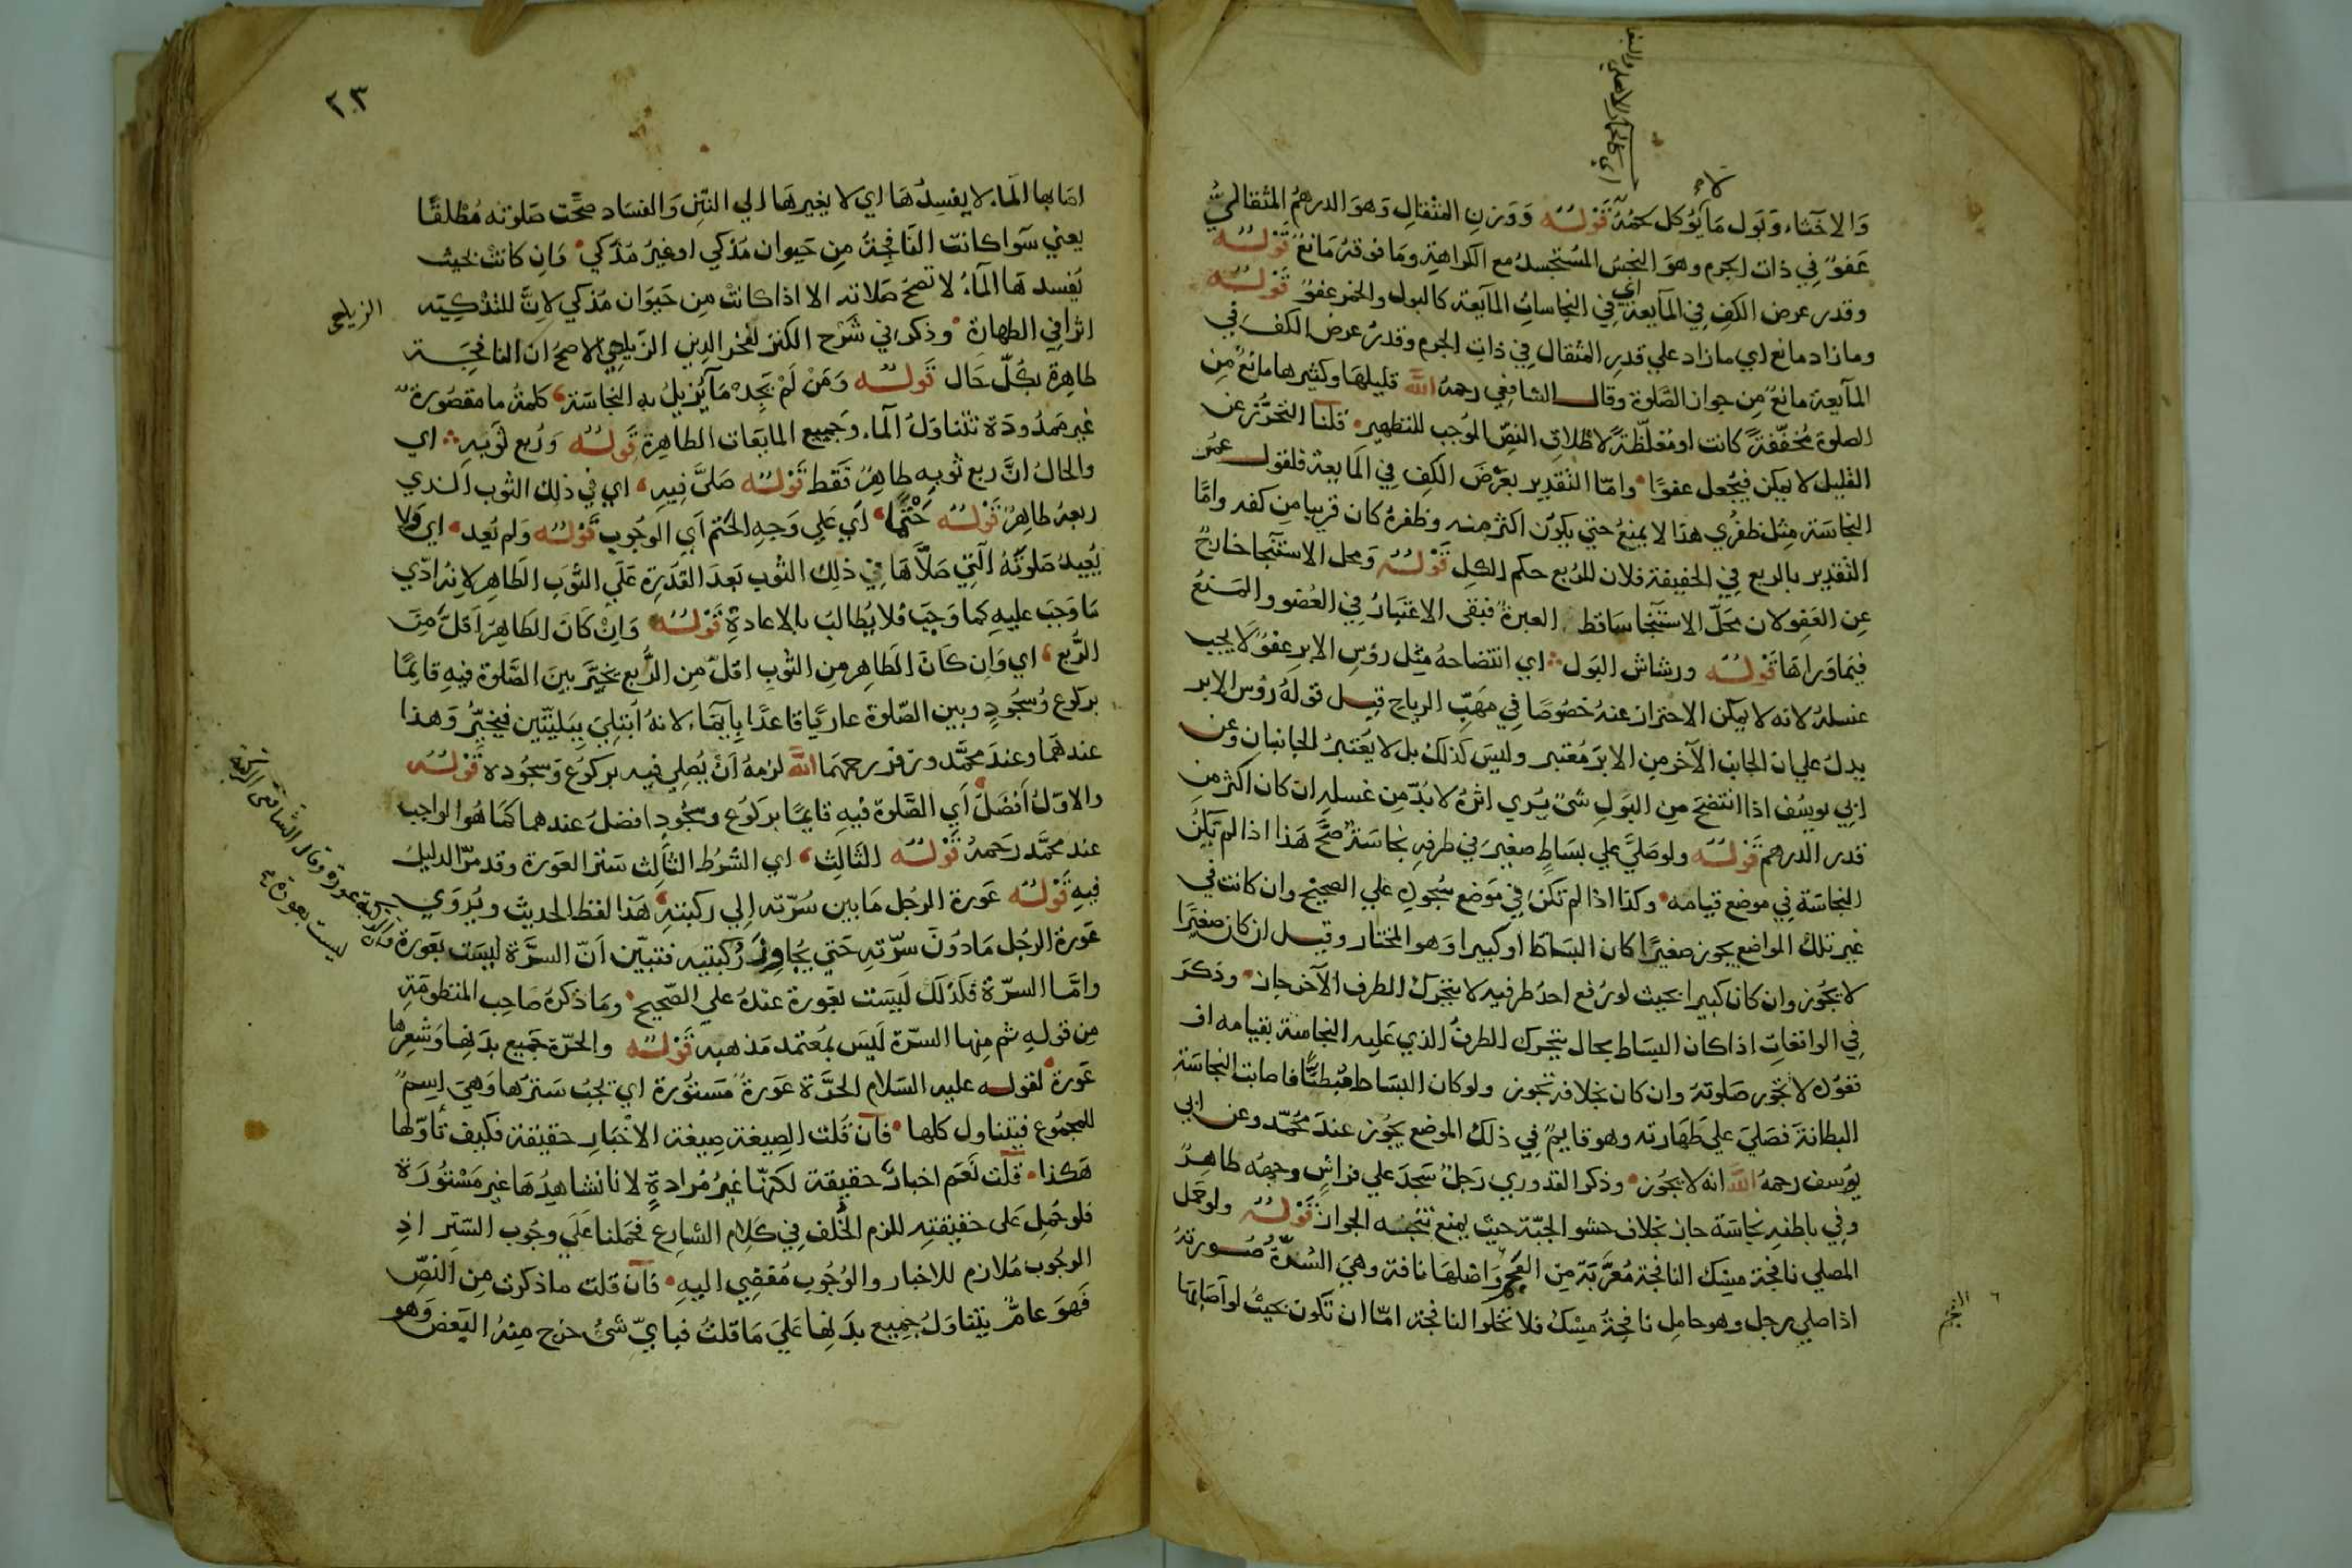 والاخثاء وبول ما يؤكل لحمه قوله ووزن المثقال وهو الدرهم المثقالي
عفو في ذات الجرم وهو النجس المستجسد مع الكراهة وما فوقه مانع قوله
وقدر عرض الكف في المآيعة اي في النجاسات المآيعة كالبول والخمر عفو قوله
وما زاد مانع اي ما زاد علي قدر المثقال في ذات الجرم وقدر عرض الكف في
المآيعة مانع من جواز الصلوة وقال الشافعي رحمه الله قليلها وكثيرها مانع من
الصلوة مخففة كانت او مغلظة لاطلاق النص الموجب للتطهير قلنا التحرز عن
القليل لا يمكن فيجعل عفوا واما التقدير بعرض الكف في المايعة فلقول عمر
النجاسة مثل ظفري هذا لا يمنع حتي يكون اكثر منه وظفره كان قريبا من كفه واما
التقدير بالربع في الخفيفة فلان للربع حكم الكل قوله ومحل الاستنجا خارج
عن العفو لان محل الاستنجا ساقط العبرة فبقى الاعتبار في العضو والمنع
فيما وراها قوله ورشاش البول اي انتضاحه مثل رؤس الابر عفو لا يجب
غسله لانه لا يمكن الاحتراز عنه خصوصا في مهب الرياح قيل قوله رؤس الابر
يدل علي ان الجانب الآخر من الابر معتبر وليس كذلك بل لا يعتبر الجانبان وعن
ابي يوسف اذا انتضح من البول شئ يري اثره لا بد من غسله ان كان اكثر من
قدر الدرهم قوله ولو صلى علي بساط صغير في طرفه نجاسة صح هذا اذا لم تكن
النجاسة في موضع قيامه وكذا اذا لم تكن في موضع سجوده علي الصحيح وان كانت في
غير تلك المواضع يجوز صغيرا كان البساط او كبيرا وهو المختار وقيل ان كان صغيرا
لا يجوز وان كان كبيرا بحيث لو رفع احد طرفيه لا يتحرك الطرف الآخر جاز وذكر
في الواقعات اذا كان البساط بحال يتحرك الطرف الذي عليه النجاسة بقيامه او
تعوده لا تجوز صلوته وان كان بخلافه تجوز ولو كان البساط مبطنا فاصابت النجاسة
البطانة فصلي علي طهارته وهو قايم في ذلك الموضع يجوز عند محمد وعن ابي
يوسف رحمه الله انه لا يجوز وذكر القدوري رجل سجد علي فراش وجهه طاهر
وفي باطنه نجاسة جاز بخلاف حشو الجبة حيث يمنع تنجسه الجواز قوله ولو حمل
المصلي نافجة مسك النافجة معربة من العجم واصلها نافة وهي السرة صورته
اذا صلي رجل وهو حامل نافجة مسك فلا تخلوا النافجة اما ان تكون بحيث لو اصابها
٢٠٣
اصابها الماء لا يفسدها اي لا يغيرها الي النتن والفساد صحت صلوته مطلقا
يعني سوا كانت النافجة من حيوان مذكي او غير مذكي وان كانت بحيث
يفسدها الماء لا تصح صلاته الا اذا كانت من حيوان مذكي لان للتذكية
اثرا في الطهارة وذكر في شرح الكنز لفخر الدين الزيلعي الاصح ان النافجة
الزيلعي
طاهرة بكل حال قوله ومن لم يجد ما يزيل به النجاسة كلمة ما مقصورة
غير ممدودة تتناول الماء وجميع المايعات الطاهرة قوله وربع ثوبه اي
والحال ان ربع ثوبه طاهر فقط قوله صلى فيه اي في ذلك الثوب الذي
ربعه طاهر قوله حتما اي علي وجه الحتم اي الوجوب قوله ولم يعد اي ولا
يعيد صلوته التي صلاها في ذلك الثوب بعد القدرة علي الثوب الطاهر لانه ادي
ما وجب عليه كما وجب فلا يطالب بالاعادة قوله وان كان الطاهر اقل من
الربع اي وان كان الطاهر من الثوب اقل من الربع يخير بين الصلوة فيه قايما
بركوع وسجود وبين الصلوة عاريا قاعدا بايماء لانه ابتلي ببليتين فيخير وهذا
عندهما وعند محمد وزفر رحمهما الله لزمه ان يصلي فيه بركوع وسجوده قوله
والاول افضل اي الصلوة فيه قايما بركوع وسجود افضل عندهما كما هو الواجب
عند محمد رحمه قوله الثالث اي الشرط الثالث ستر العورة وقد مر الدليل
فيه قوله عورة الرجل ما بين سرته الي ركبته هذا لفظ الحديث ويروي
عورة الرجل ما دون سرته حتي يجاوز ركبتيه فتبين ان السرة ليست بعورة
وقال الشافعي الركبة
ليست بعورة
واما السرة فكذلك ليست بعورة عنده علي الصحيح وما ذكره صاحب المنظومة
من قوله ثم منها السرة ليس بمعتمد مذهبه قوله والحرة جميع بدنها وشعرها
عورة لقوله عليه السلام الحرة عورة مستورة اي يجب سترها وهي اسم
للمجموع فيتناول كلها فان قلت الصيغة صيغة الاخبار حقيقة فكيف تاولها
هكذا قلت نعم اخبار حقيقة لكنها غير مرادة لانا نشاهدها غير مستورة
فلو حمل على حقيقته للزم الخلف في كلام الشارع فحملنا علي وجوب الستر اذ
الوجوب ملازم للاخبار والوجوب مفضي اليه فان قلت ما ذكرت من النص
فهو عام يتناول جميع بدنها علي ما قلت فباي شئ خرج منه البعض وهو